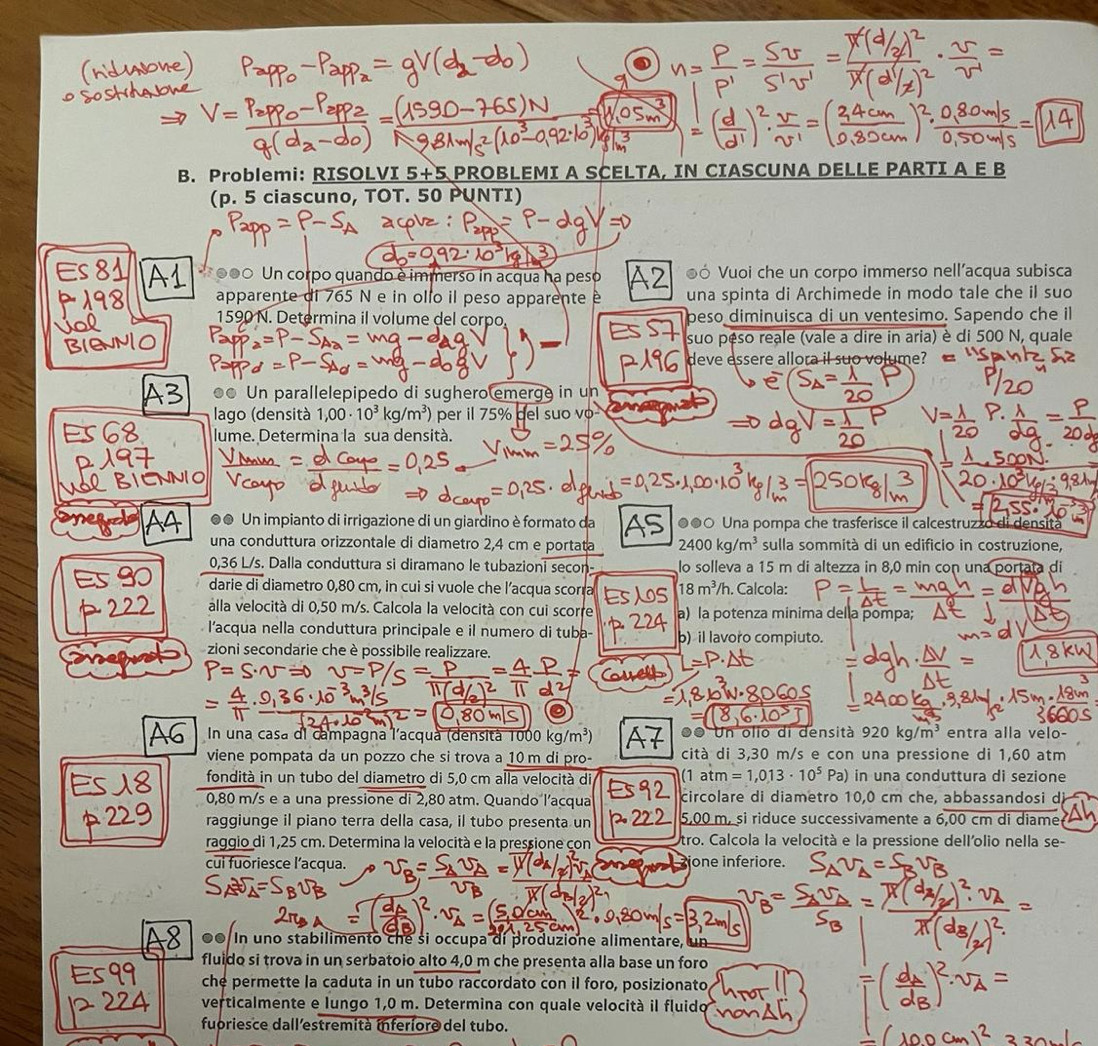 (riduzione)
o sostituzione
Papp₀ - Pappₐ = gV(dₐ-d₀)
⇒ V = Papp₀ - Pappₐ / g(dₐ-d₀) = (1590-765)N / 9,81m/s²(10³-0,92·10³)kg/m³ = 1,05m³
n = P/P' = Sv/S'v' = π(d/2)²/π(d'/2)² · v/v' =
= (d/d')² · v/v' = (2,4cm/0,80cm)² · 0,80m/s / 0,50m/s = 14
B. Problemi: RISOLVI 5+5 PROBLEMI A SCELTA, IN CIASCUNA DELLE PARTI A E B
(p. 5 ciascuno, TOT. 50 PUNTI)
Papp = P - S_A acqua: Papp = P - dgV ⇒
d₀ = 0,92·10³ kg/m³
ES 81
p 198
vol
BIENNIO
A1
Un corpo quando è immerso in acqua ha peso
apparente di 765 N e in olio il peso apparente è
1590 N. Determina il volume del corpo.
Pappₐ = P - S_Aₐ = mg - dₐgV
Papp₀ = P - S_A₀ = mg - d₀gV
A2
Vuoi che un corpo immerso nell'acqua subisca
una spinta di Archimede in modo tale che il suo
peso diminuisca di un ventesimo. Sapendo che il
suo peso reale (vale a dire in aria) è di 500 N, quale
deve essere allora il suo volume?
ES 57
p 196
assegnato
= "spinta Sa
P/20
è S_A = 1/20 P
⇒ dgV = 1/20 P
V = 1/20 P · 1/dg = P/20dg
= 1·500N / 20·10³kg/m³·9,81m/s²
= 2,55·10⁻³m³
A3
Un parallelepipedo di sughero emerge in un
lago (densità 1,00 · 10³ kg/m³) per il 75% del suo vo-
lume. Determina la sua densità.
ES 68
p 197
vol BIENNIO
assegnato
V imm = 25%
V imm / V corpo = d corpo / d fluido = 0,25
⇒ d corpo = 0,25 · d fluido = 0,25·1,00·10³ kg/m³ = 250kg/m³
A4
Un impianto di irrigazione di un giardino è formato da
una conduttura orizzontale di diametro 2,4 cm e portata
0,36 L/s. Dalla conduttura si diramano le tubazioni secon-
darie di diametro 0,80 cm, in cui si vuole che l'acqua scorra
alla velocità di 0,50 m/s. Calcola la velocità con cui scorre
l'acqua nella conduttura principale e il numero di tuba-
zioni secondarie che è possibile realizzare.
ES 90
p 222
assegnato
P = S·v ⇒ v = P/S = P/π(d/2)² = 4/π P/d² =
= 4/π · 0,36·10⁻³m³/s / (2,4·10⁻²m)² = 0,80m/s
A5
Una pompa che trasferisce il calcestruzzo di densità
2400 kg/m³ sulla sommità di un edificio in costruzione,
lo solleva a 15 m di altezza in 8,0 min con una portata di
18 m³/h. Calcola:
a) la potenza minima della pompa;
b) il lavoro compiuto.
ES 105
p 224
P = L/Δt = mgh/Δt = dVgh/Δt
m = dV
= dgh · ΔV/Δt =
1,8kW
= 2400 kg/m³ · 9,8m/s² · 15m · 18m³/3600s
L = P·Δt
= 1,8·10³W·8·60s
= 8,6·10⁵J
A6
In una casa di campagna l'acqua (densità 1000 kg/m³)
viene pompata da un pozzo che si trova a 10 m di pro-
fondità in un tubo del diametro di 5,0 cm alla velocità di
0,80 m/s e a una pressione di 2,80 atm. Quando l'acqua
raggiunge il piano terra della casa, il tubo presenta un
raggio di 1,25 cm. Determina la velocità e la pressione con
cui fuoriesce l'acqua.
ES 18
p 229
S_A v_A = S_B v_B
v_B = S_A v_A / v_B = π(d_A/2)² v_A / π(d_B/2)²
= (d_A/d_B)² · v_A = (5,0cm / 2·1,25cm)² · 0,80m/s = 3,2m/s
A7
Un olio di densità 920 kg/m³ entra alla velo-
cità di 3,30 m/s e con una pressione di 1,60 atm
(1 atm = 1,013 · 10⁵ Pa) in una conduttura di sezione
circolare di diametro 10,0 cm che, abbassandosi di
5,00 m, si riduce successivamente a 6,00 cm di diame-
tro. Calcola la velocità e la pressione dell'olio nella se-
zione inferiore.
ES 92
p. 222
assegnato
Δh
S_A v_A = S_B v_B
v_B = S_A v_A / S_B = π(d_A/2)² · v_A / π(d_B/2)² =
= (d_A/d_B)² · v_A =
= (10,0 cm)² 3,30m/s
A8
In uno stabilimento che si occupa di produzione alimentare, un
fluido si trova in un serbatoio alto 4,0 m che presenta alla base un foro
che permette la caduta in un tubo raccordato con il foro, posizionato
verticalmente e lungo 1,0 m. Determina con quale velocità il fluido
fuoriesce dall'estremità inferiore del tubo.
ES 99
p 224
h tot !!
non Δh